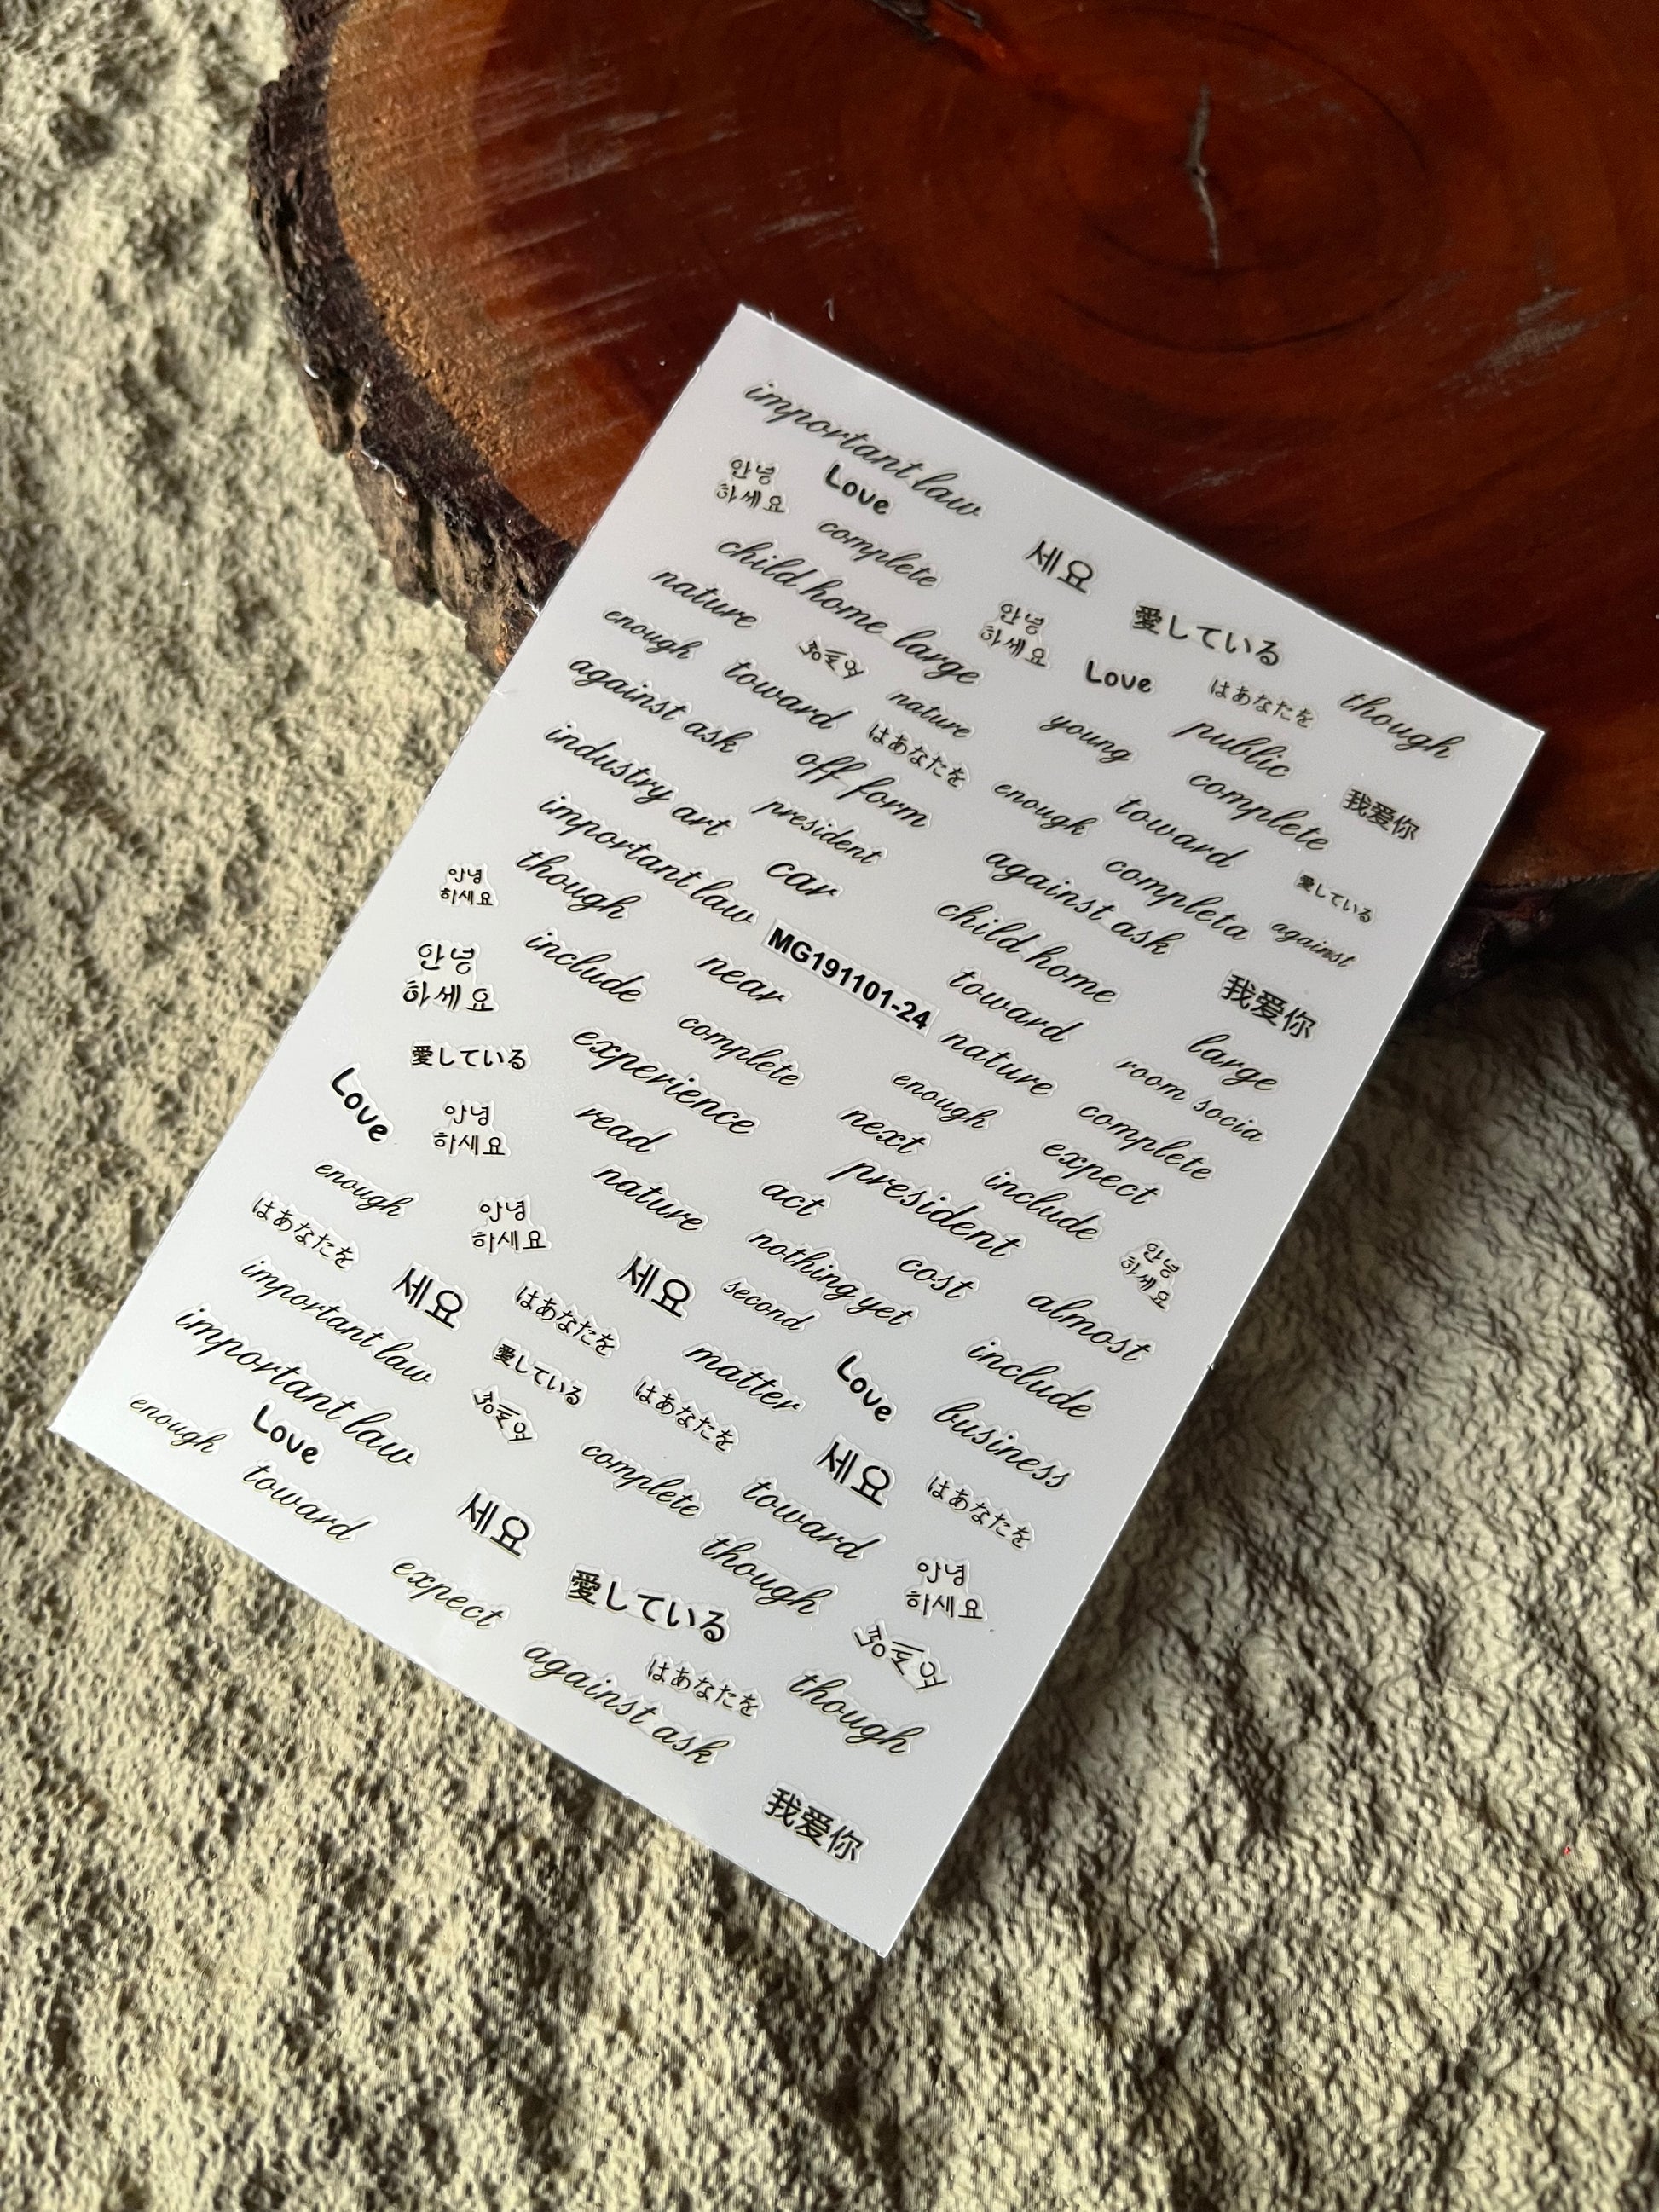 important law
안녕
하세요
Love
complete
세요
child home large
안녕
하세요
愛している
nature
Love
はあなたを
though
enough
toward
nature
young
public
against ask
はあなたを
complete
我爱你
off form
enough
toward
industry art
president
against ask
completa
愛している
important law
car
against
though
child home
안녕
하세요
MG191101-24
toward
我爱你
include
near
large
안녕
하세요
complete
nature
room socia
experience
enough
complete
愛している
next
expect
Love
안녕
하세요
read
president
include
nature
act
안녕
하세요
enough
안녕
하세요
nothing yet
cost
almost
はあなたを
세요
세요
second
include
important law
はあなたを
matter
Love
business
important law
愛している
はあなたを
세요
はあなたを
enough
Love
complete
toward
toward
세요
though
안녕
하세요
expect
愛している
against ask
はあなたを
though
我爱你